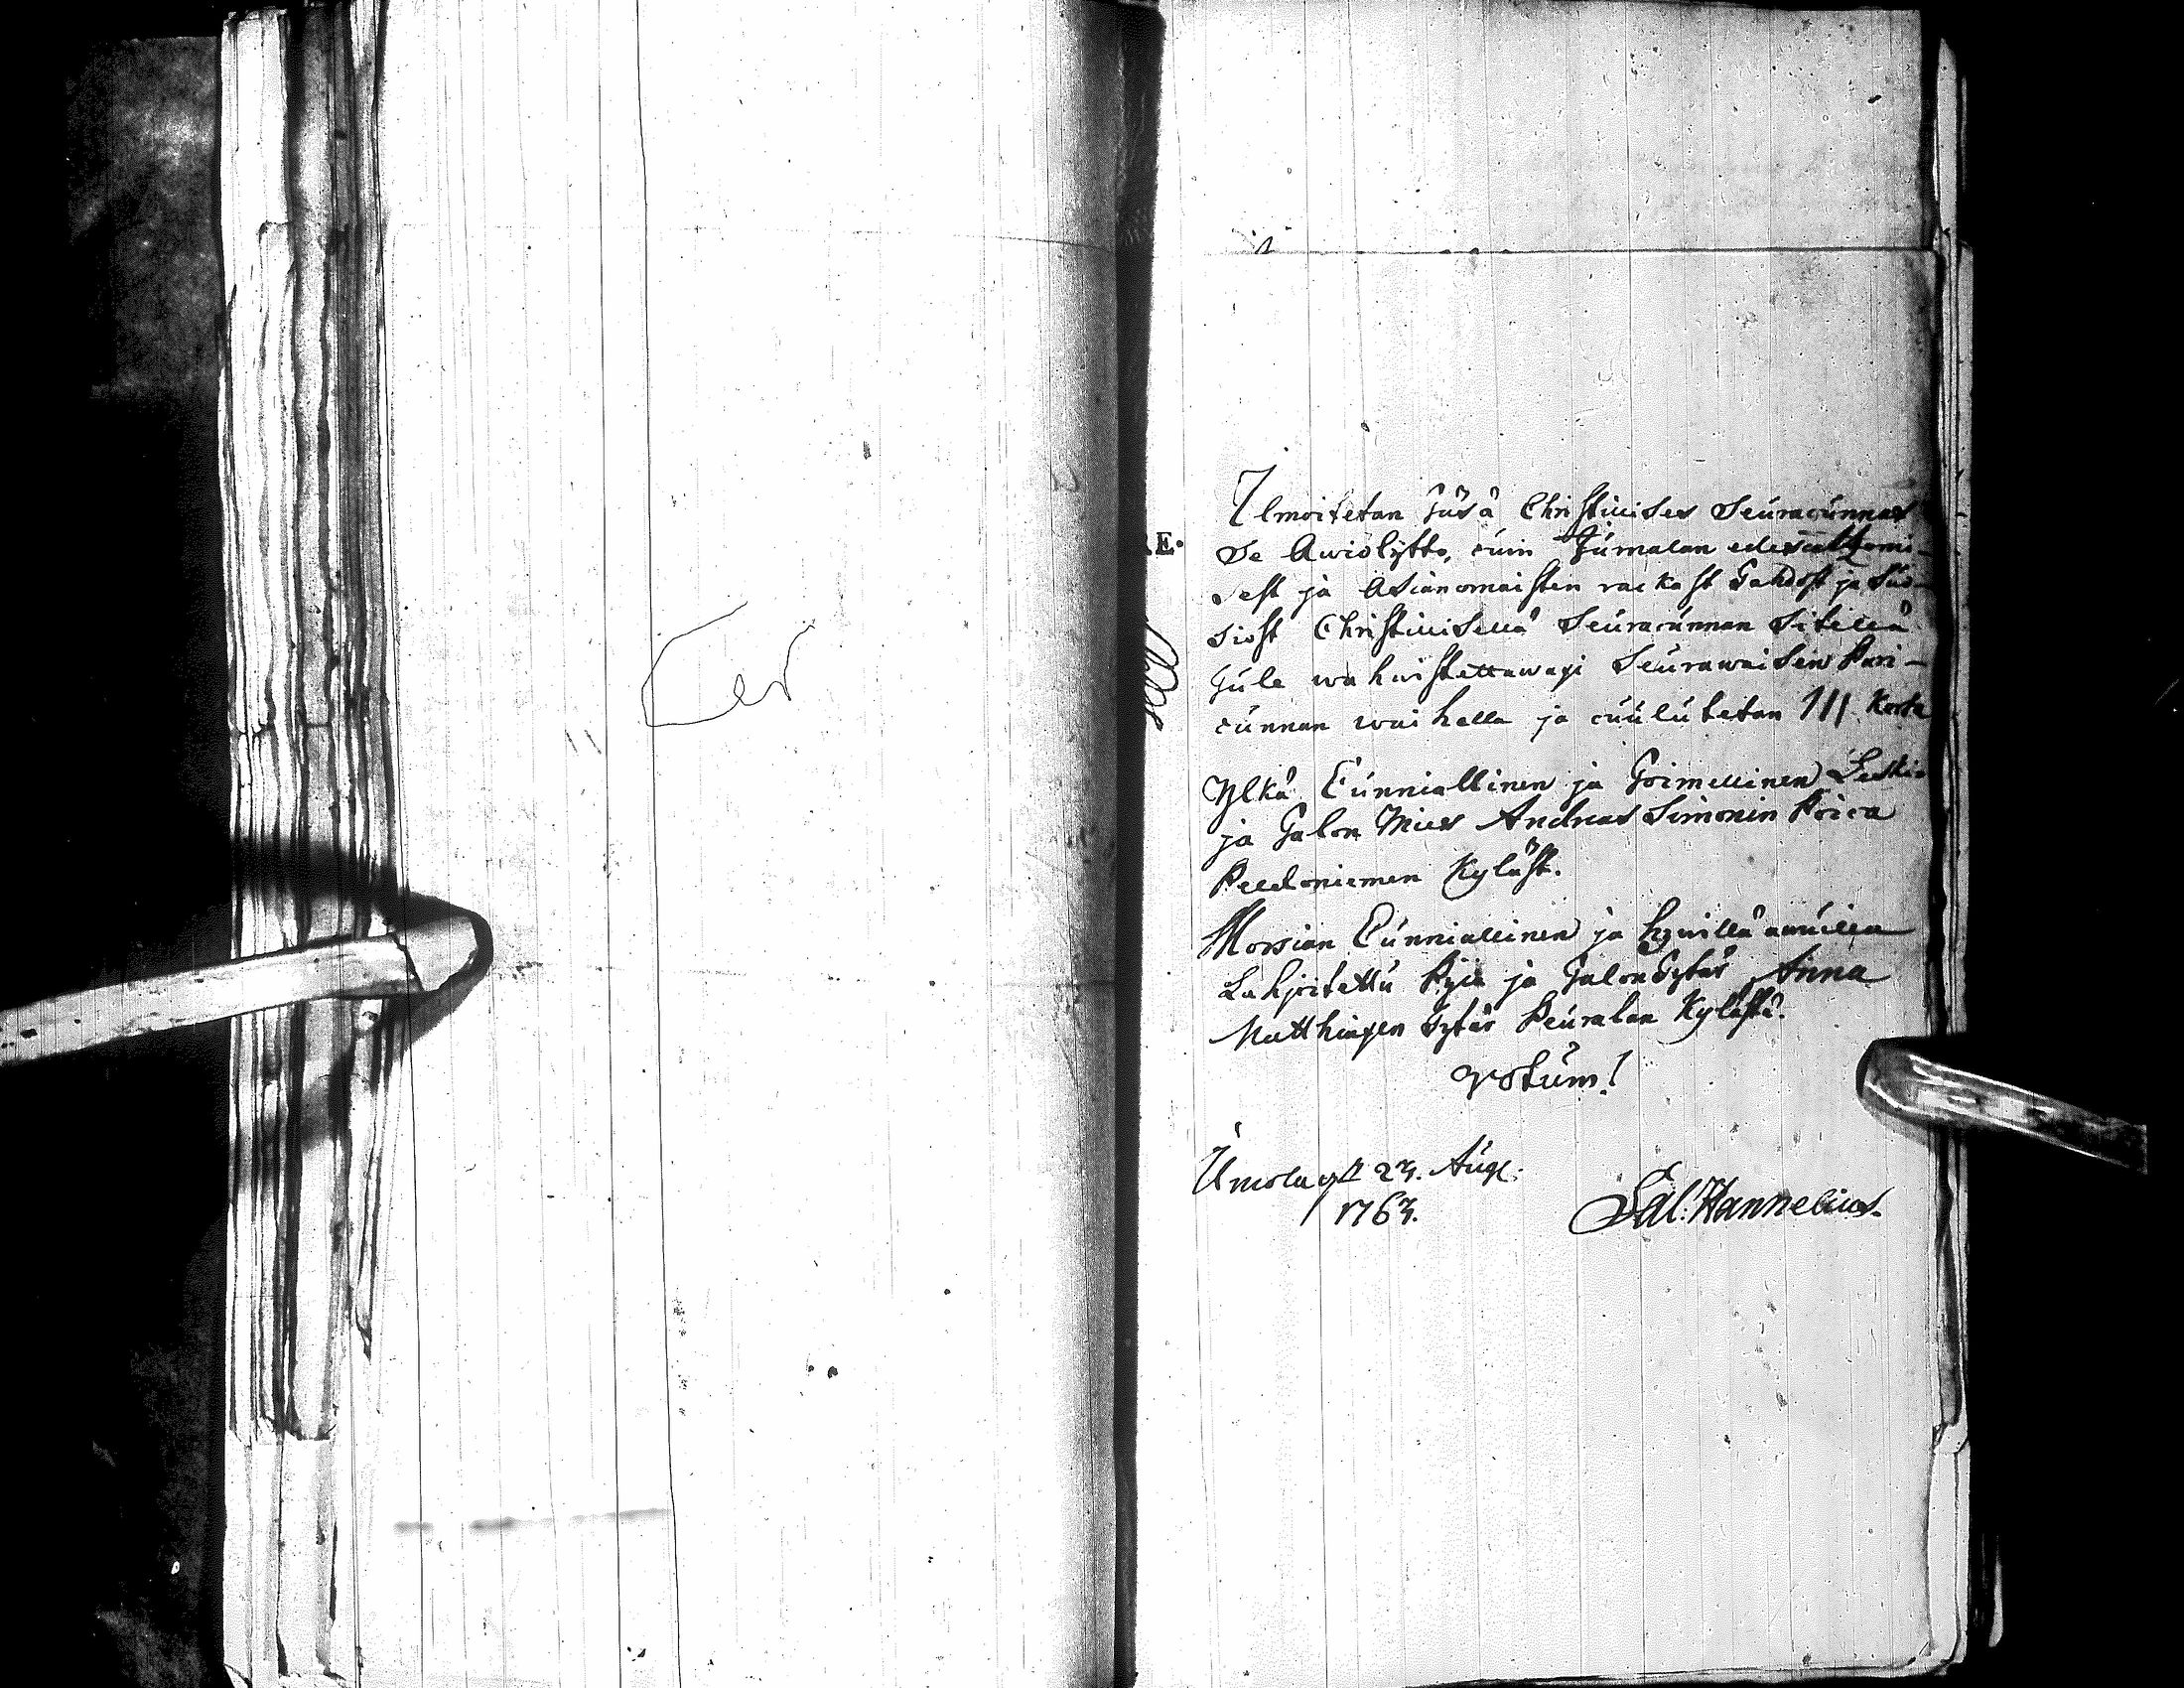 Ilmoitetan Täsä Christillises Seuracunnas
Se Awiolijtto, cuin Jumalan edescatzomi-
sest ja Asianomaisten rackast Tahdost ja Suo-
siost Christillisellä Seuracunnan Sitellä
Tule wahwistettawaxi Seurawaisen Pari-
cunnan waihella ja cuulutetan III Kerta
Ylkä Cunniallinen ja Toimellinen Leski-
ja Talon Mies Andreas Simonin Poica
Peldoniemen Kyläst.
Morsian Cunniallinen ja hywillä awuilla
Lahjoitettu Pijca ja Talon Tytär Anna
Matthiaxen Tytär Peuralan Kylästä.
Votum!
Umola 23. Aug:
1763.
Sal: Hannelius.